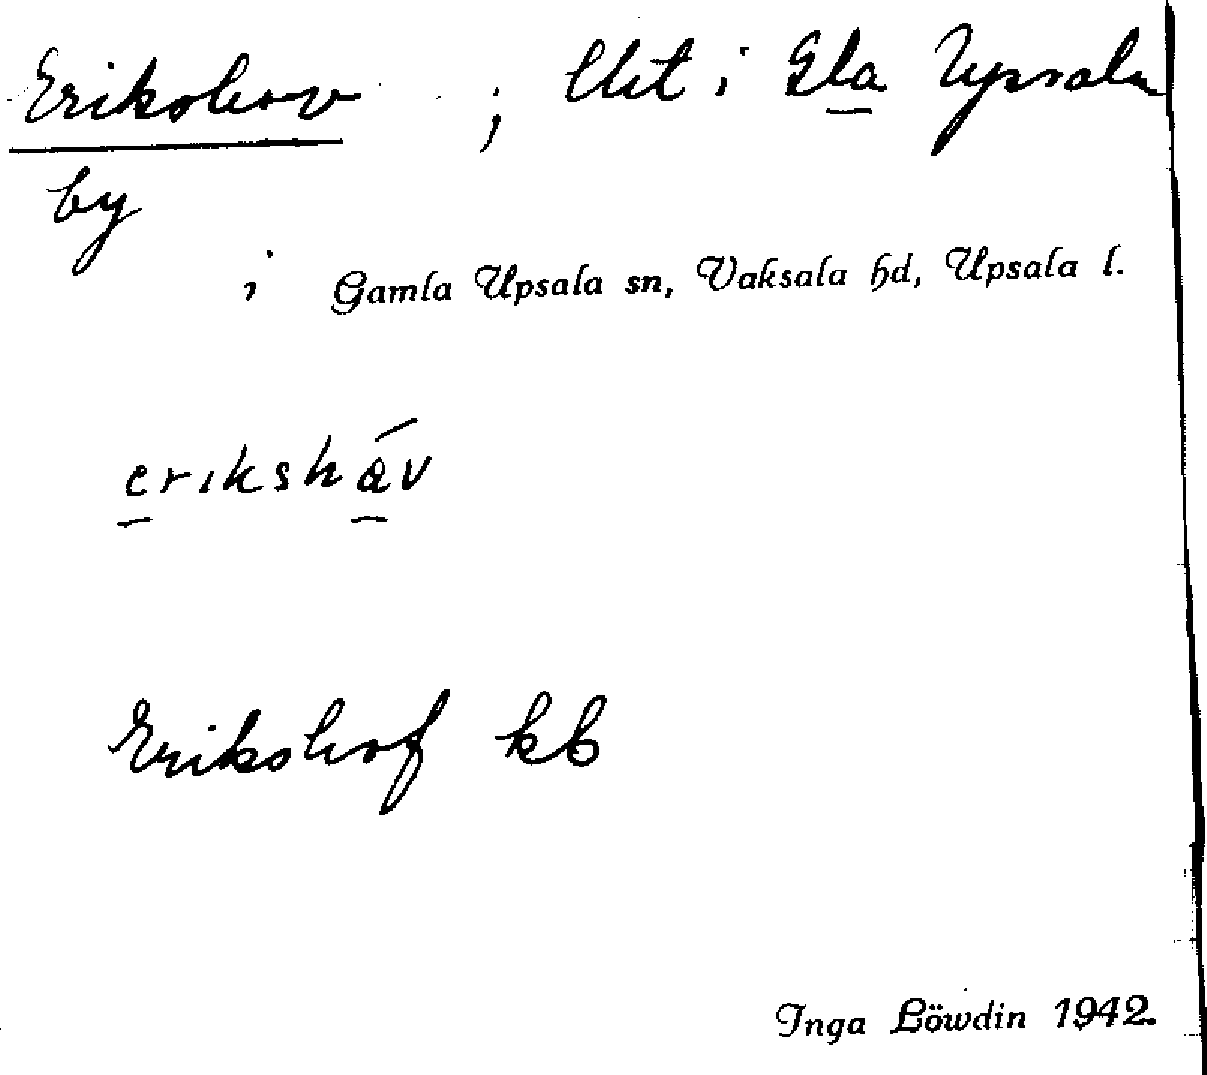 Erikshov ; Utt i Gla Upsala
by
i Gamla Upsala sn, Vaksala hd, Upsala l.
erikshåv
Erikshof kb
Inga Löwdin 1942.